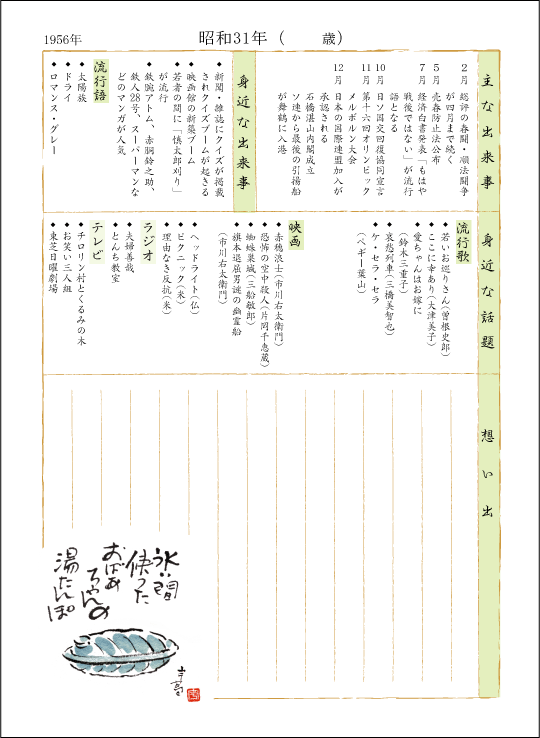 1956年
昭和31年（　　歳）
主な出来事
2月 総評の春闘・順法闘争
が四月まで続く
5月 売春防止法公布
7月 経済白書発表「もはや
戦後ではない」が流行
語となる
10月 日ソ国交回復協同宣言
11月 第十六回オリンピック
メルボルン大会
12月 日本の国際連盟加入が
承認される
石橋湛山内閣成立
ソ連から最後の引揚船
が舞鶴に入港
身近な出来事
◆新聞・雑誌にクイズが掲載
されクイズブームが起きる
◆映画館の新築ブーム
◆若者の間に「慎太郎刈り」
が流行
◆鉄腕アトム、赤胴鈴之助、
鉄人28号、スーパーマンな
どのマンガが人気
流行語
◆太陽族
◆ドライ
◆ロマンス・グレー
身近な話題
流行歌
◆若いお巡りさん（曽根史郎）
◆ここに幸あり（大津美子）
◆愛ちゃんはお嫁に
（鈴木三重子）
◆哀愁列車（三橋美智也）
◆ケ・セラ・セラ
（ペギー葉山）
映画
◆赤穂浪士（市川右太衛門）
◆恐怖の空中殺人（片岡千恵蔵）
◆蜘蛛巣城（三船敏郎）
◆旗本退屈男謎の幽霊船
（市川右太衛門）
◆ヘッドライト（仏）
◆ピクニック（米）
◆理由なき反抗（米）
ラジオ
◆夫婦善哉
◆とんち教室
テレビ
◆チロリン村とくるみの木
◆お笑い三人組
◆東芝日曜劇場
想い出
永い間
使った
おばあ
ちゃんの
湯たんぽ